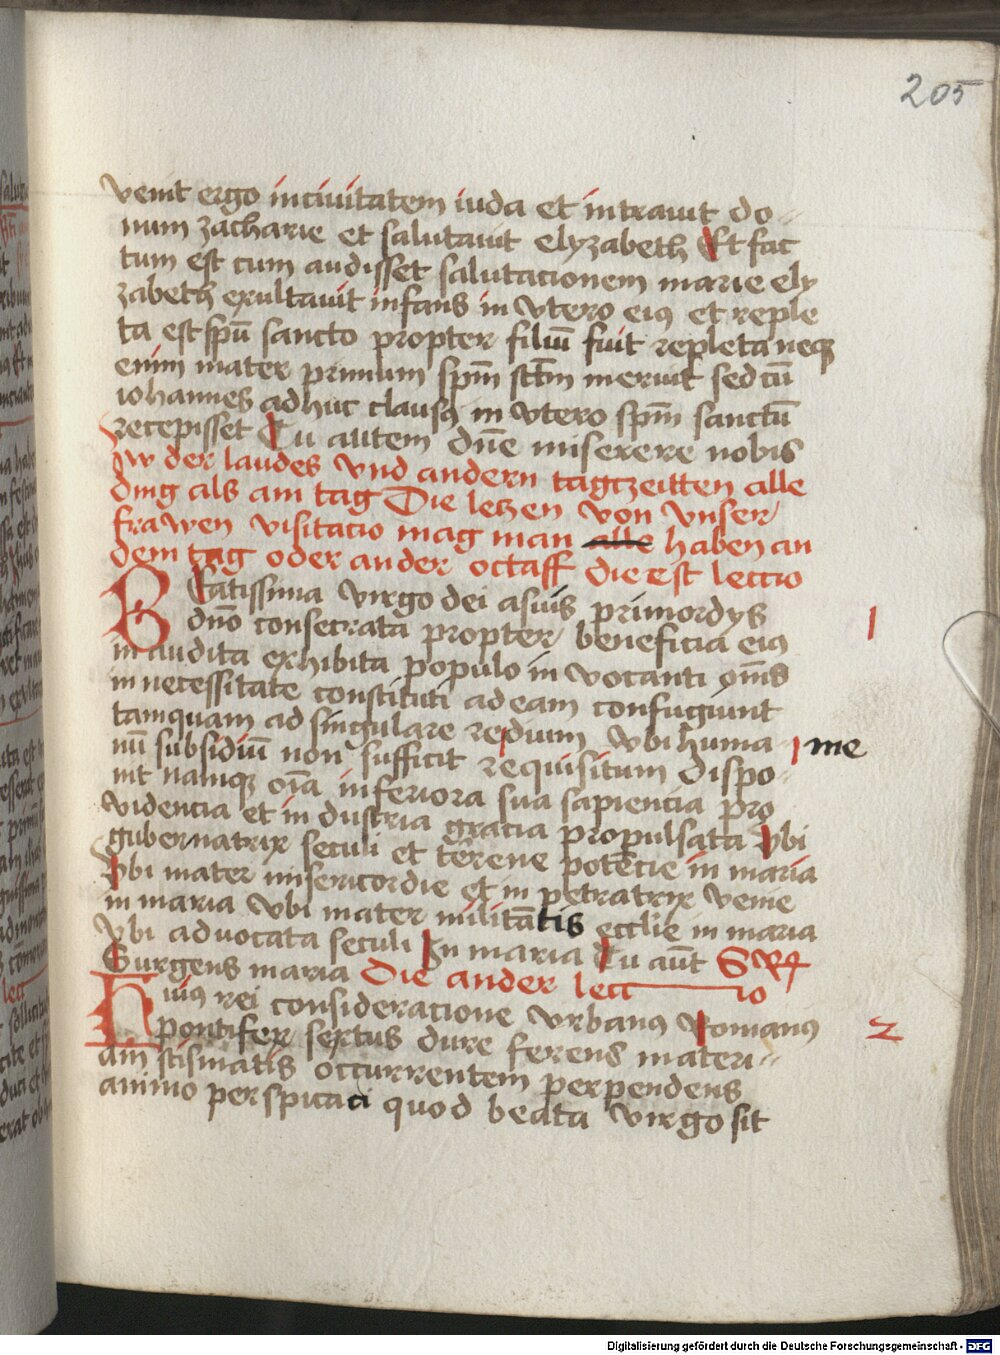 205
venit ergo in ciuitatem iuda et intrauit do-
mum zacharie et salutauit elyzabeth Et fac
tum est cum audisset salutacionem marie ely
zabeth exultauit infans in vtero eiꝰ et reple
ta est spū sancto propter filiū fuit repleta neqꝫ
enim mater primum spm̄ sctm̄ meruit sed cū
iohannes adhuc clausꝰ in vtero spm̄ sanctū
recepisset Tu autem dn̄e miserere nobis
zw der laudes vnd andern tagzeitten alle
ding als am tag Die letzen von vnser
frawen visitacio mag man alle haben an
dem tag oder ander octaff die est lectio
BEatissima virgo dei a suis primordys
dn̄o consecrata propter beneficia eiꝰ
in audita exhibita populo in vocanti om̄s
in necessitate constituti ad eam confugiunt
tamquam ad singulare redium vbi huma me
nū subsidiū non sufficit requisitum dispo-
nit namqꝫ oīa inferiora sua sapiencia pro
videncia et in dustria gracia propulsata vbi
gubernatrix seculi et terrene potēcie in maria
vbi mater misericordie et in petratrix venie
in maria vbi mater militātis ecclie in maria
vbi aduocata seculi In maria Tu aūt
Surgens maria Die ander lectio
Huiꝰ rei consideracione vrbanꝰ romanꝰ
pontifex sextus dure ferens materi-
am scismatis occurrentem perpendens
animo perspicaci quod beata virgo sit
1
2
Digitalisierung gefördert durch die Deutsche Forschungsgemeinschaft - DFG